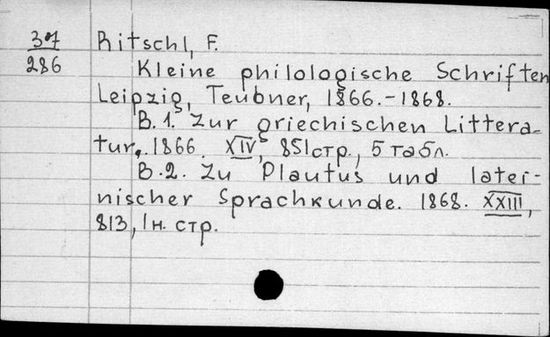 37 Ritschl, F.
286
Kleine philologische Schriften
Leipzig, Teubner, 1866.-1868.
B.1. Zur griechischen Littera-
tur. 1866. XIV, 851 стр., 5 табл.
B.2. Zu Plautus und latei-
nischer Sprachkunde. 1868. XXIII,
813, 1н. стр.